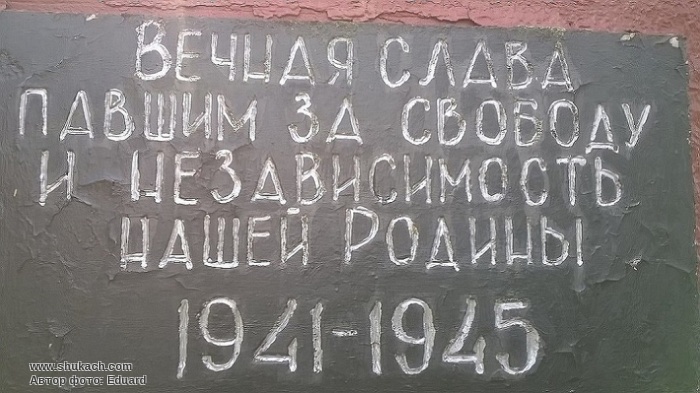 Вечная слава
павшим за свободу
и независимость
нашей Родины
1941-1945
www.shukach.com
Автор фото: Eduard